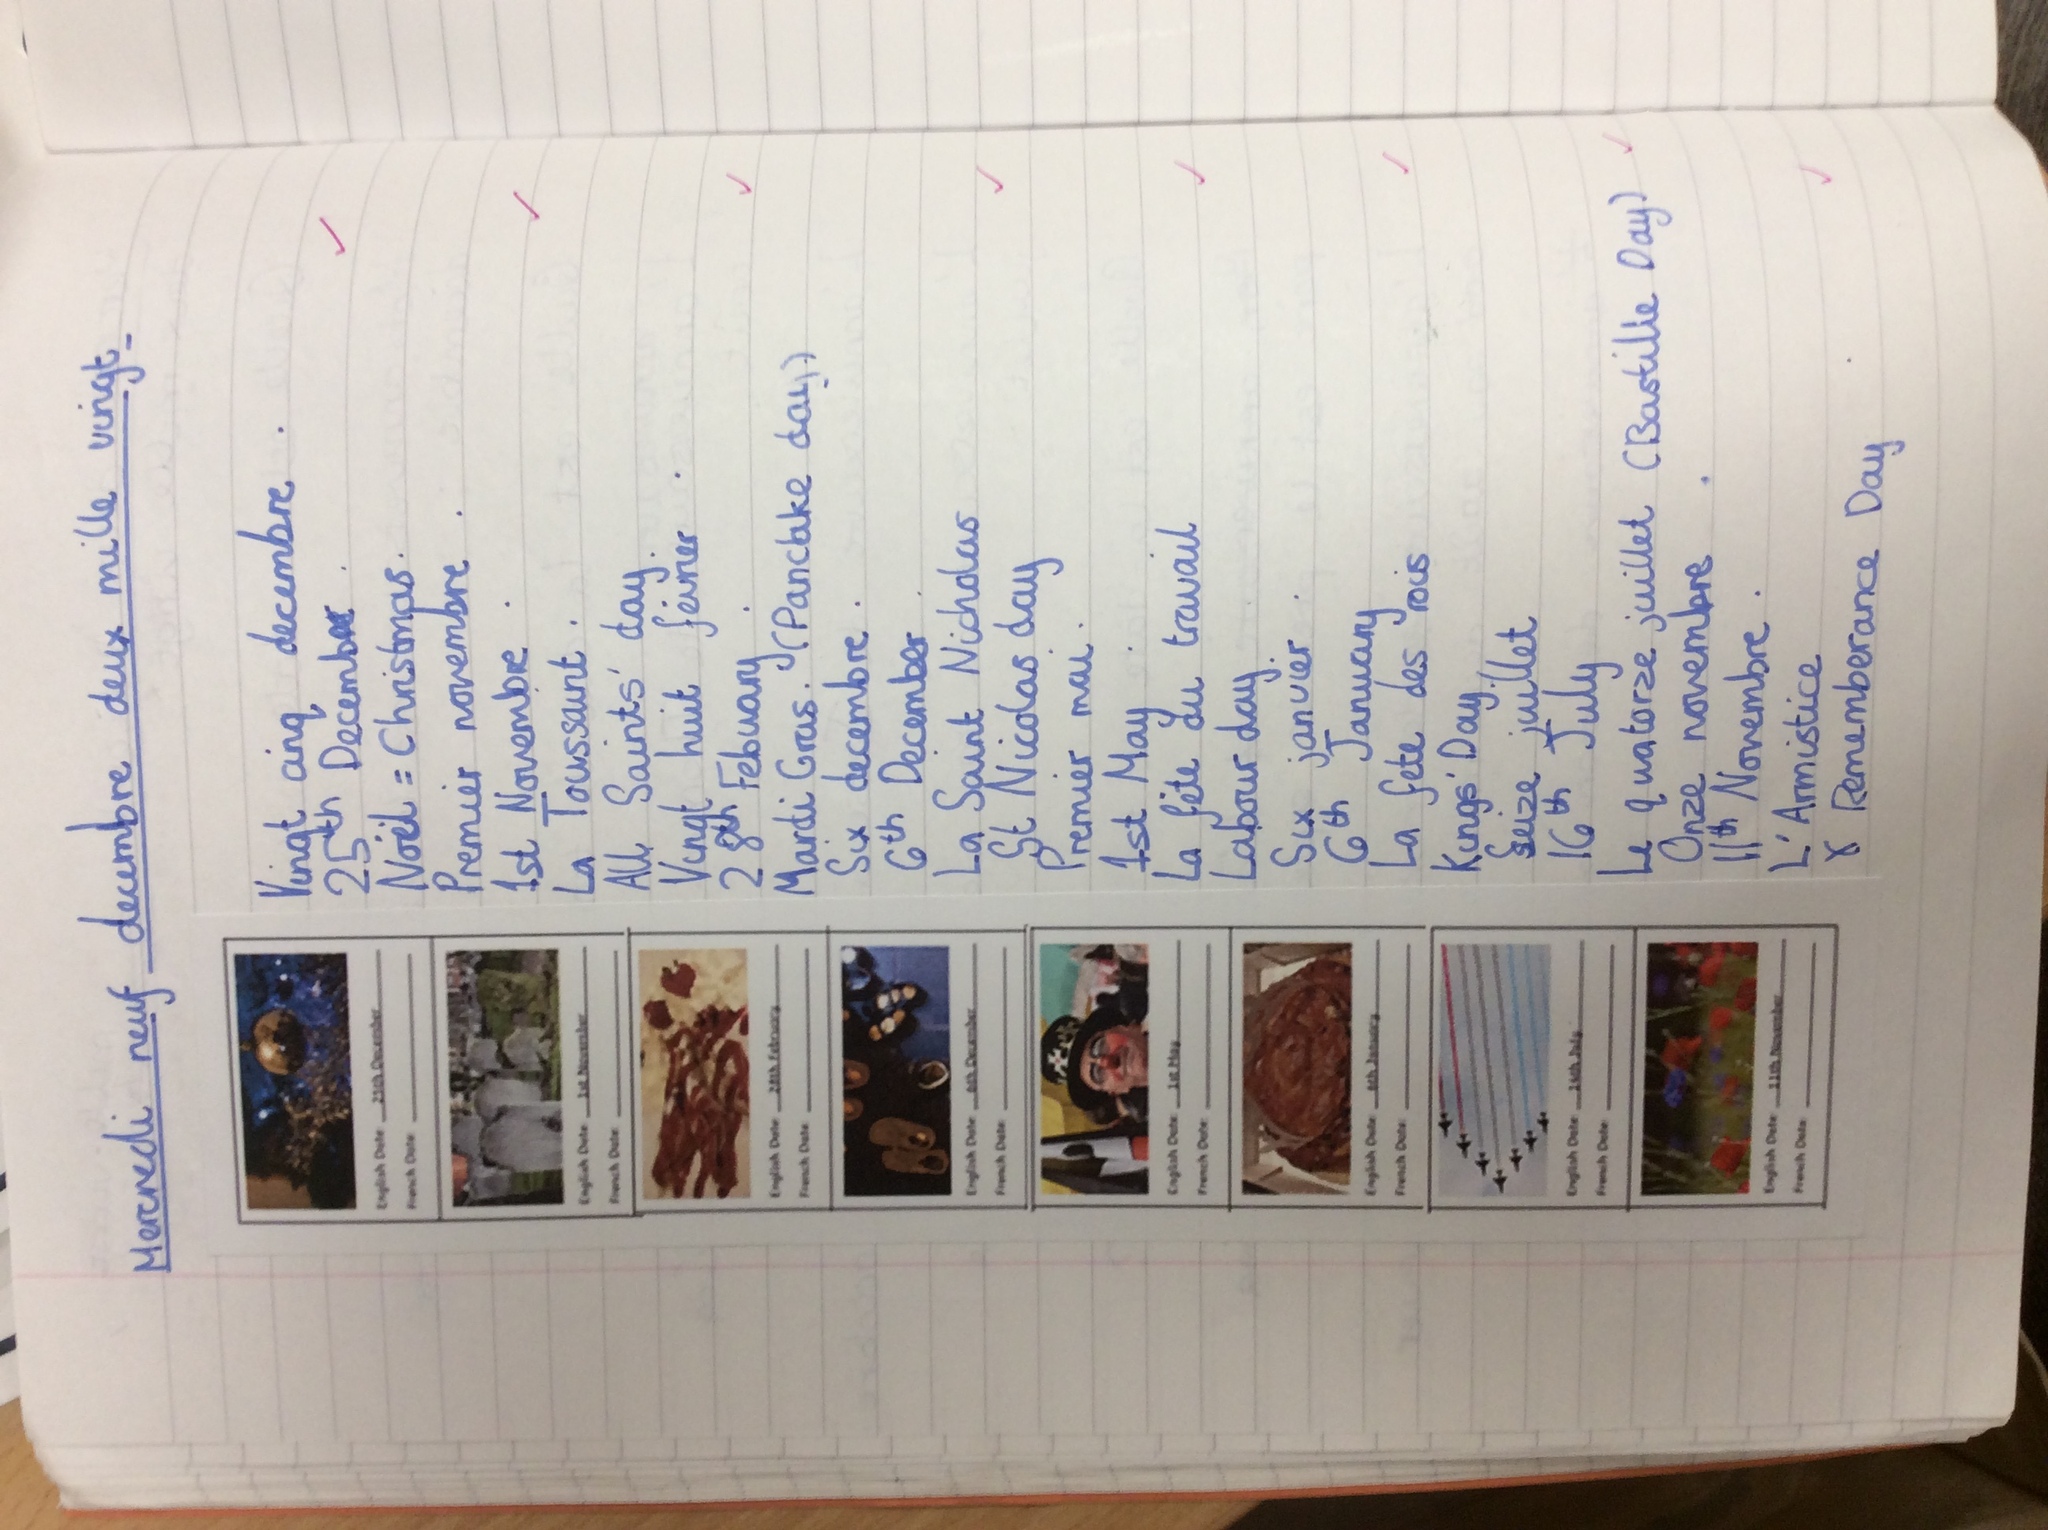 Mercredi neuf decembre deux mille vingt
English Date: 25th December
French Date:
English Date: 1st November
French Date:
English Date: 28th February
French Date:
English Date: 6th December
French Date:
English Date: 1st May
French Date:
English Date: 6th January
French Date:
English Date:
French Date:
English Date: 11th November
French Date:
Vingt cinq decembre.
25th December.
Nöel = Christmas.
Premier novembre.
1st Novembre.
La Toussant.
All Saints' day.
Vingt huit février.
28th Febuary.
Mardi Gras. (Pancake day)
Six decembre.
6th December
La Saint Nicholas
St Nicolas day
Premier mai.
1st May
La fête du travail
Labour day.
Six janvier.
6th January
La fête des rois
Kings' Day.
Seize juillet
16th July
Le quatorze juillet (Bastille Day)
Onze novembre.
11th Novembre.
L'Armistice
Rememberance Day